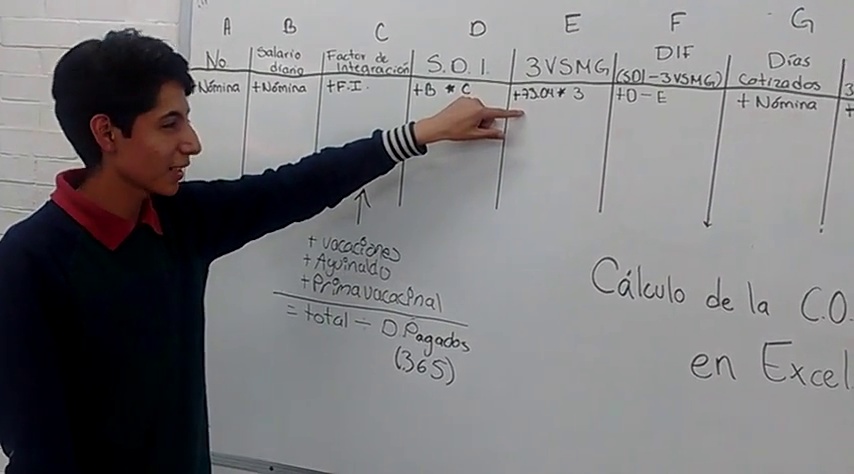 A B C D E F G
No. Salario diario Factor de Integración S.D.I. 3VSMG DIF (SDI-3VSMG) Días Cotizados 3
Nómina +Nómina +F.I. +B * C +73.04 * 3 +D-E + Nómina +
+ vacaciones
+ Aguinaldo
+ Prima vacacinal
= total ÷ D.Pagados
(365)
Cálculo de la C.O.
en Excel